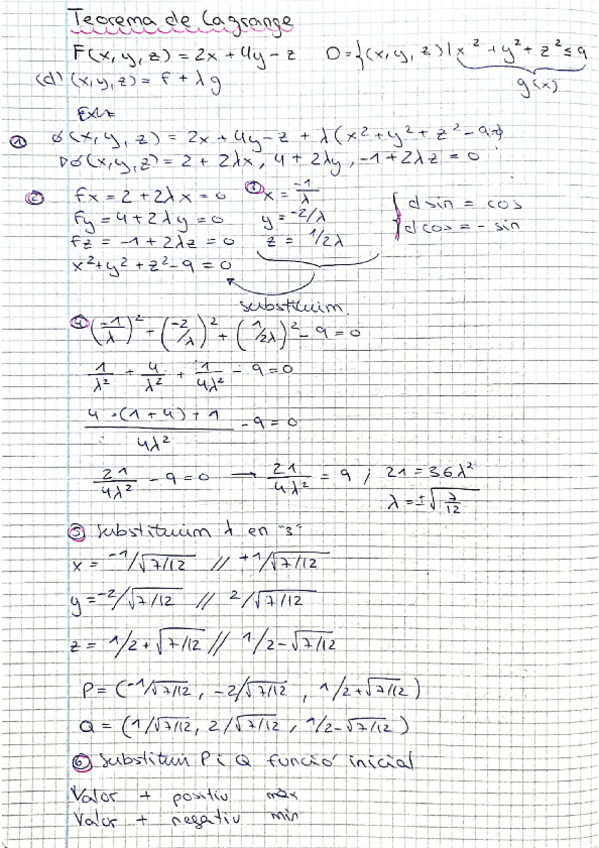 Teorema de Lagrange
F(x,y,z) = 2x + 4y - z   D = {(x,y,z) | x² + y² + z² ≤ 9
g(x)
(d) (x,y,z) = f + λg
① σ(x,y,z) = 2x + 4y - z + λ(x² + y² + z² - 9
∇σ(x,y,z) = 2 + 2λx, 4 + 2λy, -1 + 2λz = 0
② fx = 2 + 2λx = 0   ③ x = -1/λ   { d sin = cos
fy = 4 + 2λy = 0   y = -2/λ   d cos = - sin
fz = -1 + 2λz = 0   z = 1/2λ
x² + y² + z² - 9 = 0
substituim.
④ (-1/λ)² + (-2/λ)² + (1/2λ)² - 9 = 0
1/λ² + 4/λ² + 1/4λ² - 9 = 0
4·(1+4)+1/4λ² - 9 = 0
21/4λ² - 9 = 0 → 21/4λ² = 9 ; 21 = 36λ²
λ = ±√7/12
⑤ Substituim λ en "3"
x = -1/√7/12 // +1/√7/12
y = -2/√7/12 // 2/√7/12
z = 1/2+√7/12 // 1/2-√7/12
P = (-1/√7/12, -2/√7/12, 1/2+√7/12)
Q = (1/√7/12, 2/√7/12, 1/2-√7/12)
⑥ Substituir P i Q funció inicial
Valor + positiu màx
Valor + negatiu min